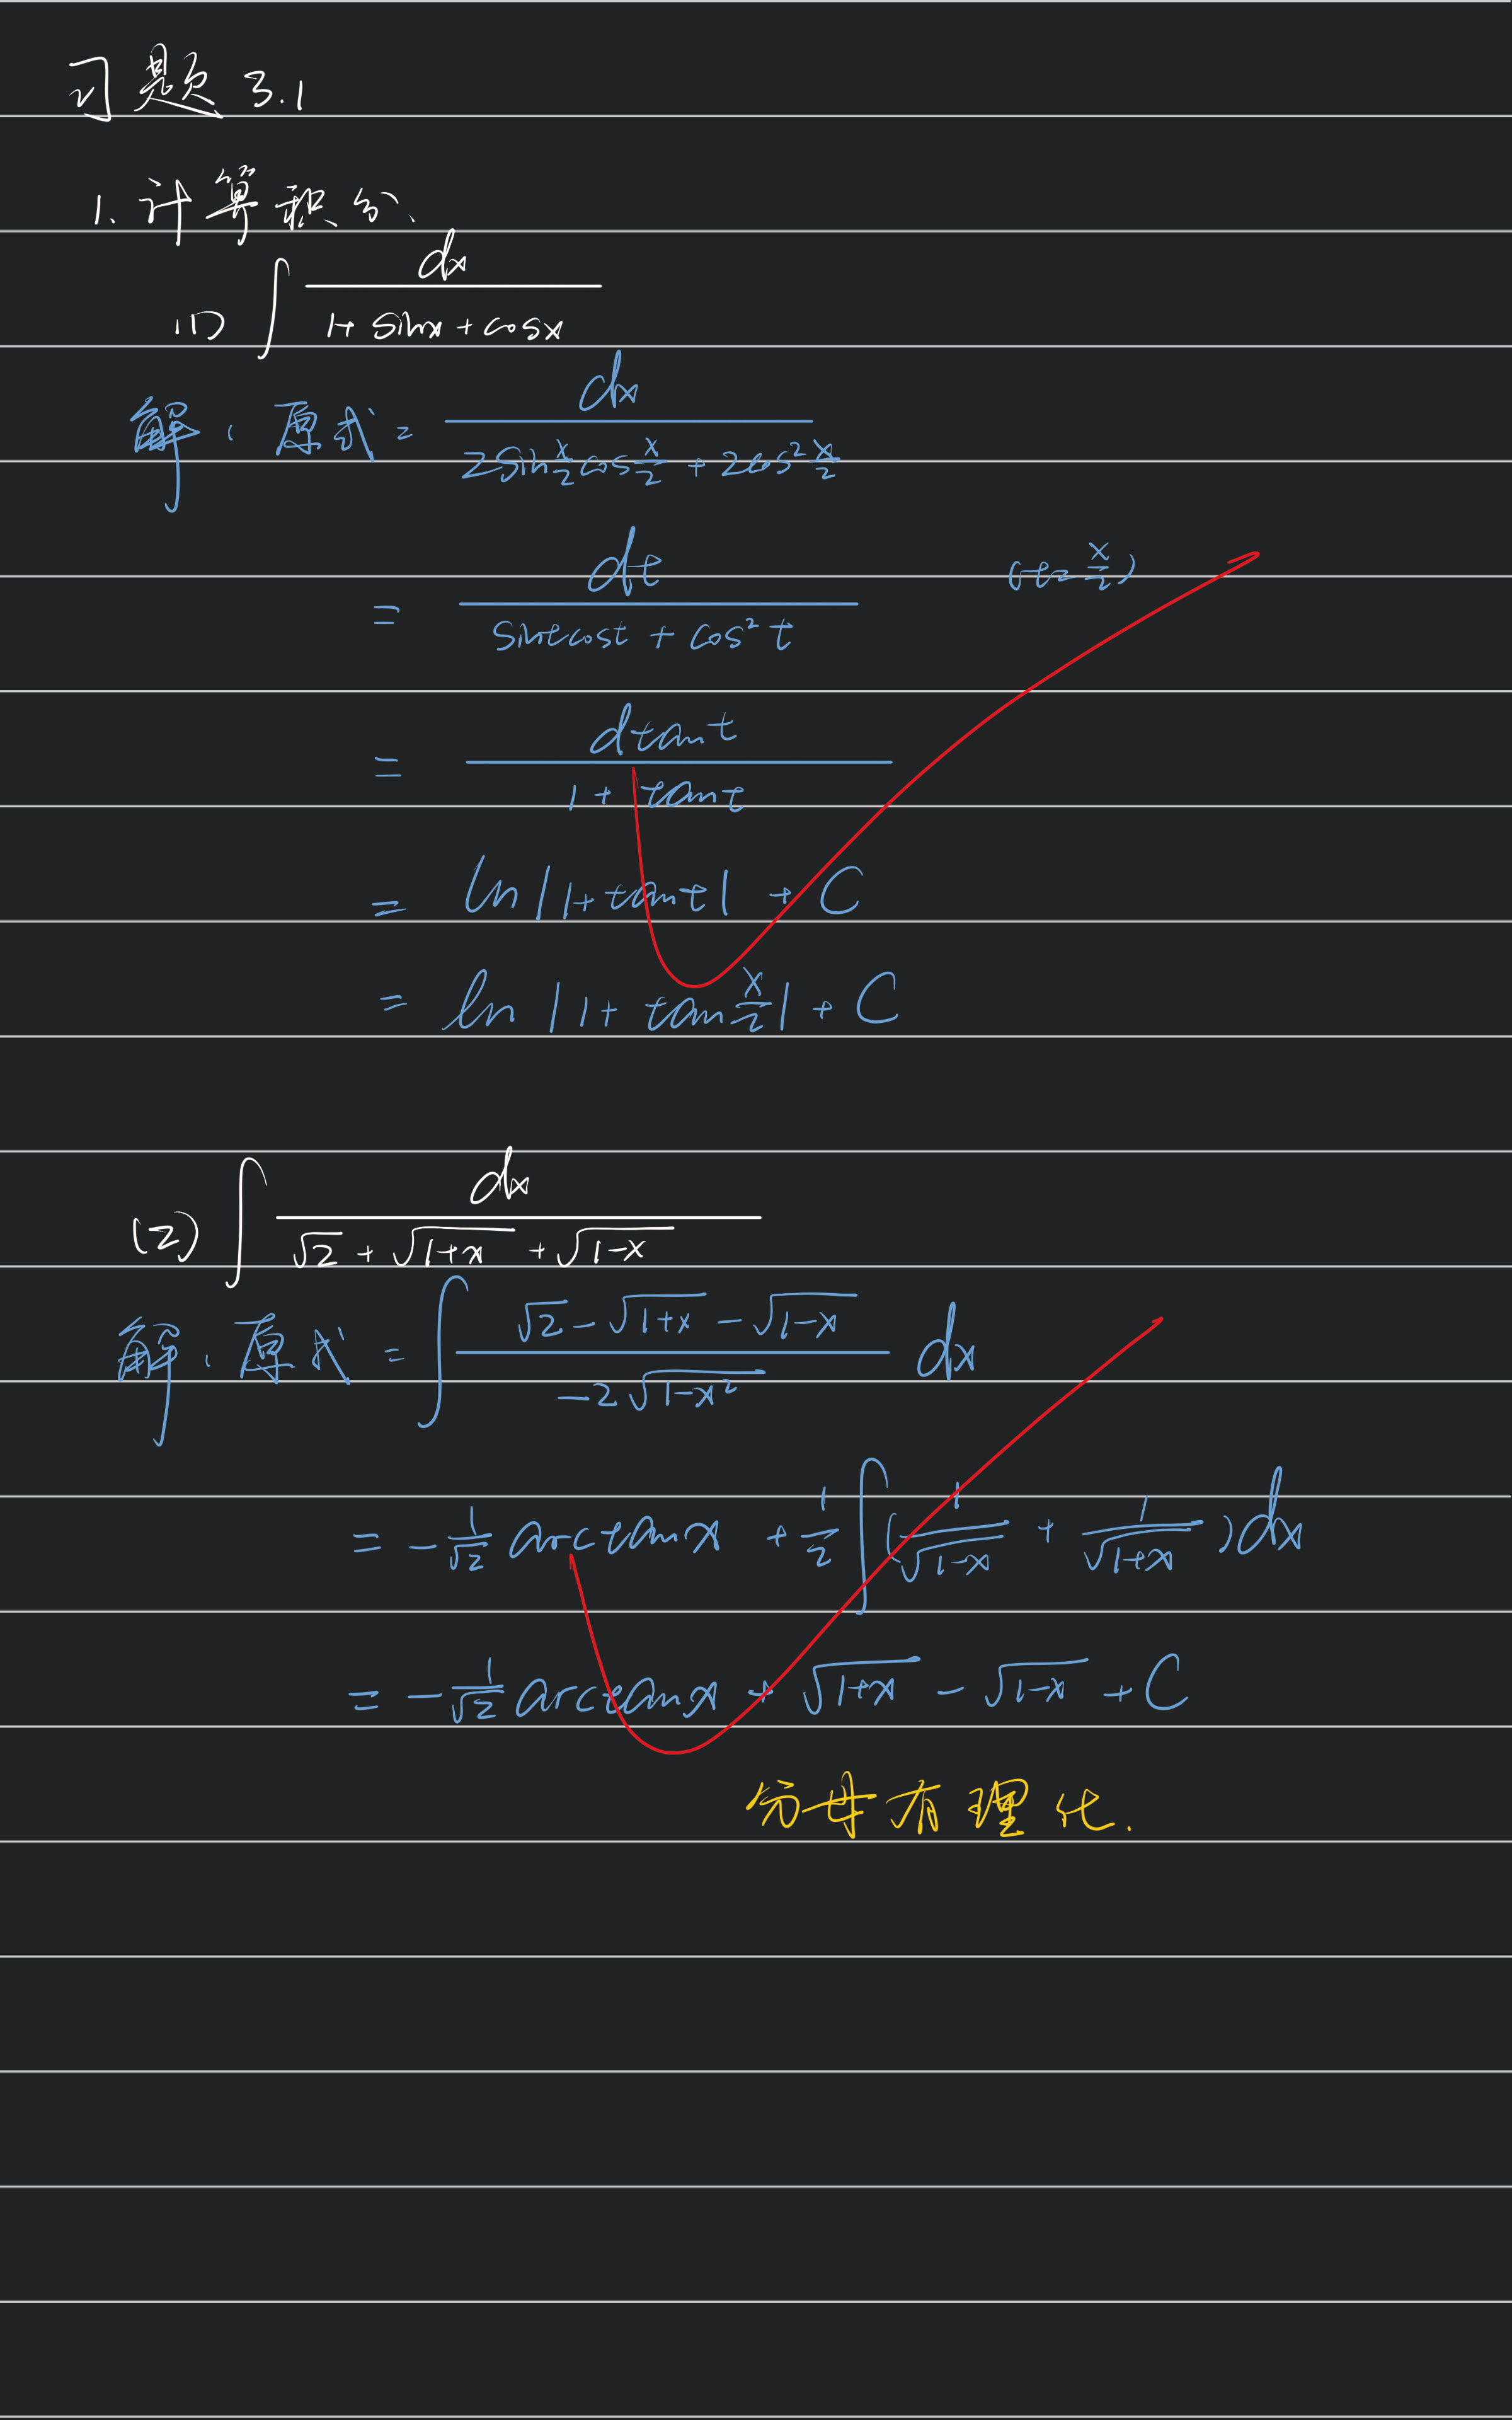 习题 3.1
1. 计算积分.
(1) ∫ dx / (1 + sinx + cosx)
解: 原式 = dx / (2sin x/2 cos x/2 + 2cos² x/2)
= dt / (sint cost + cos² t) (t = x/2)
= d tan t / (1 + tan t)
= ln |1 + tan t| + C
= ln |1 + tan x/2| + C
(2) ∫ dx / (√2 + √(1+x) + √(1-x))
解: 原式 = ∫ (√2 - √(1+x) - √(1-x)) / (-2√(1-x²)) dx
= -1/√2 arctan x + 1/2 ∫ (1/√(1-x) + 1/√(1+x)) dx
= -1/√2 arctan x + √(1+x) - √(1-x) + C
分母有理化.